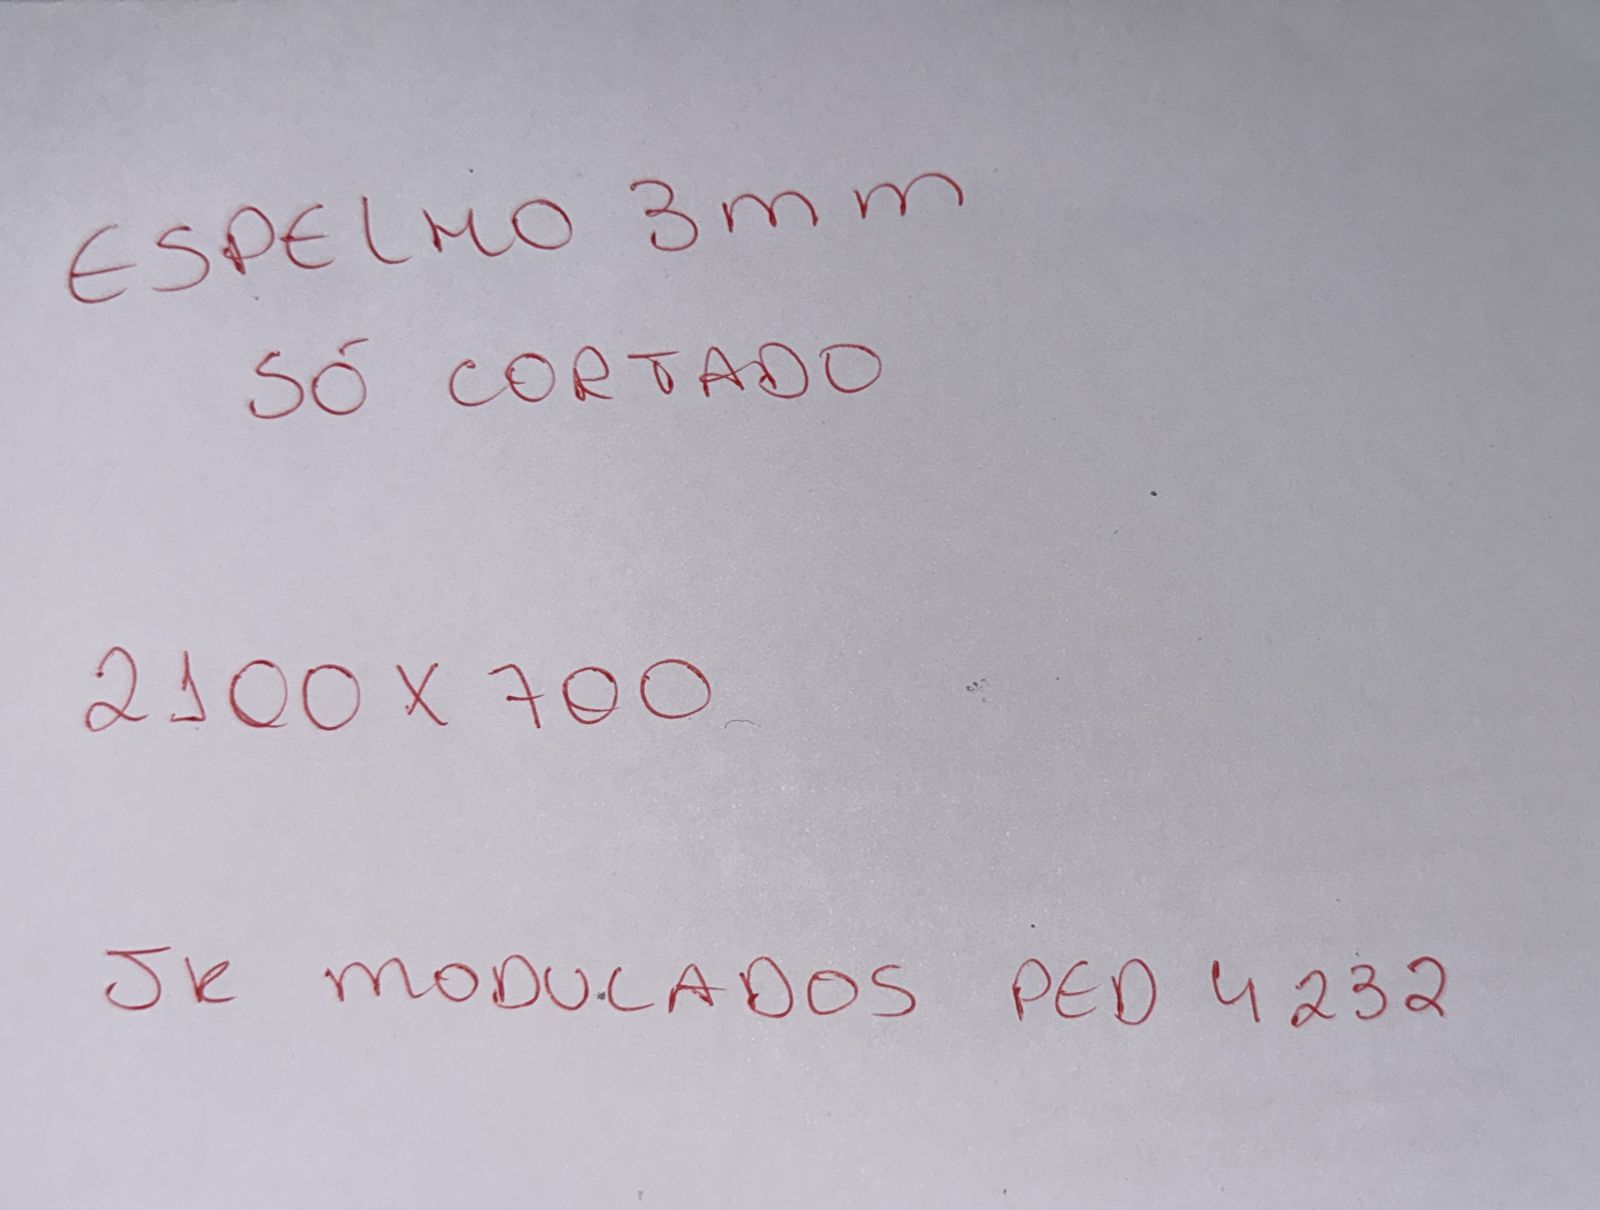 ESPELHO 3mm
SÓ CORTADO
2100 X 700
JK MODULADOS PED 4232